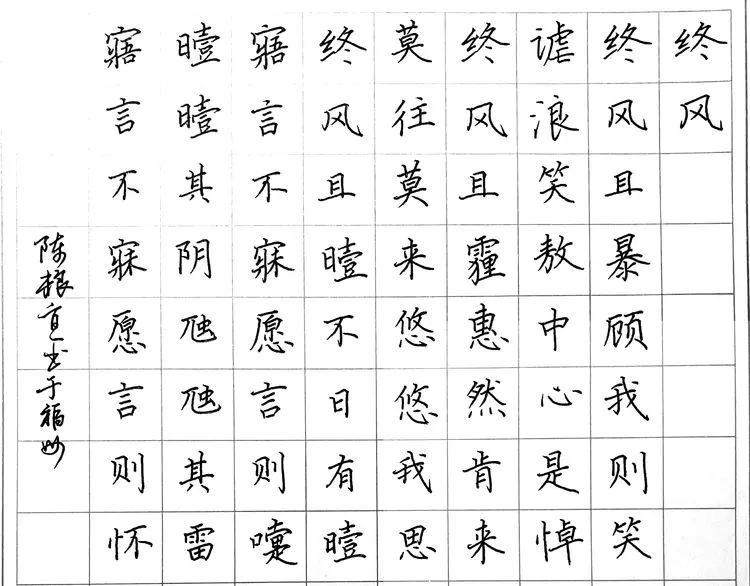 终风
终风且暴顾我则笑
谑浪笑敖中心是悼
终风且霾惠然肯来
莫往莫来悠悠我思
终风且曀不日有曀
寤言不寐愿言则嚏
曀曀其阴虺虺其雷
寤言不寐愿言则怀
陈根直书于福妙